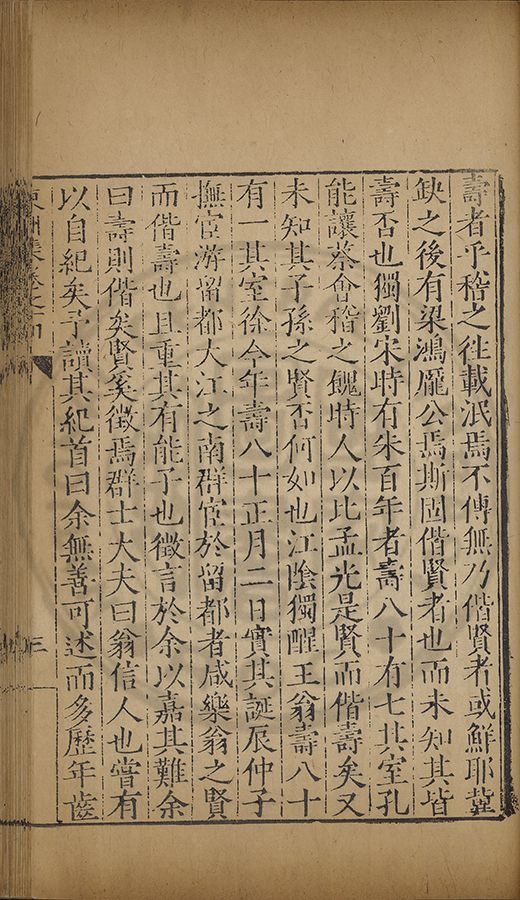 壽者乎稽之往載泯焉不傳無乃偕賢者或鮮耶冀
缺之後有梁鴻龐公焉斯固偕賢者也而未知其皆
壽否也獨劉宋時有朱百年者壽八十有七其室孔
能讓蔡會稽之餽時人以比孟光是賢而偕壽矣又
未知其子孫之賢否何如也江陰獨醒王翁壽八十
有一其室徐今年壽八十正月二日實其誕辰仲子
撫宦游留都大江之南群宦於留都者咸樂翁之賢
而偕壽也且重其有能子也徵言於余以嘉其難余
曰壽則偕矣賢奚徵焉群士大夫曰翁信人也嘗有
以自紀矣予讀其紀首曰余無善可述而多歷年齒
集卷之
三